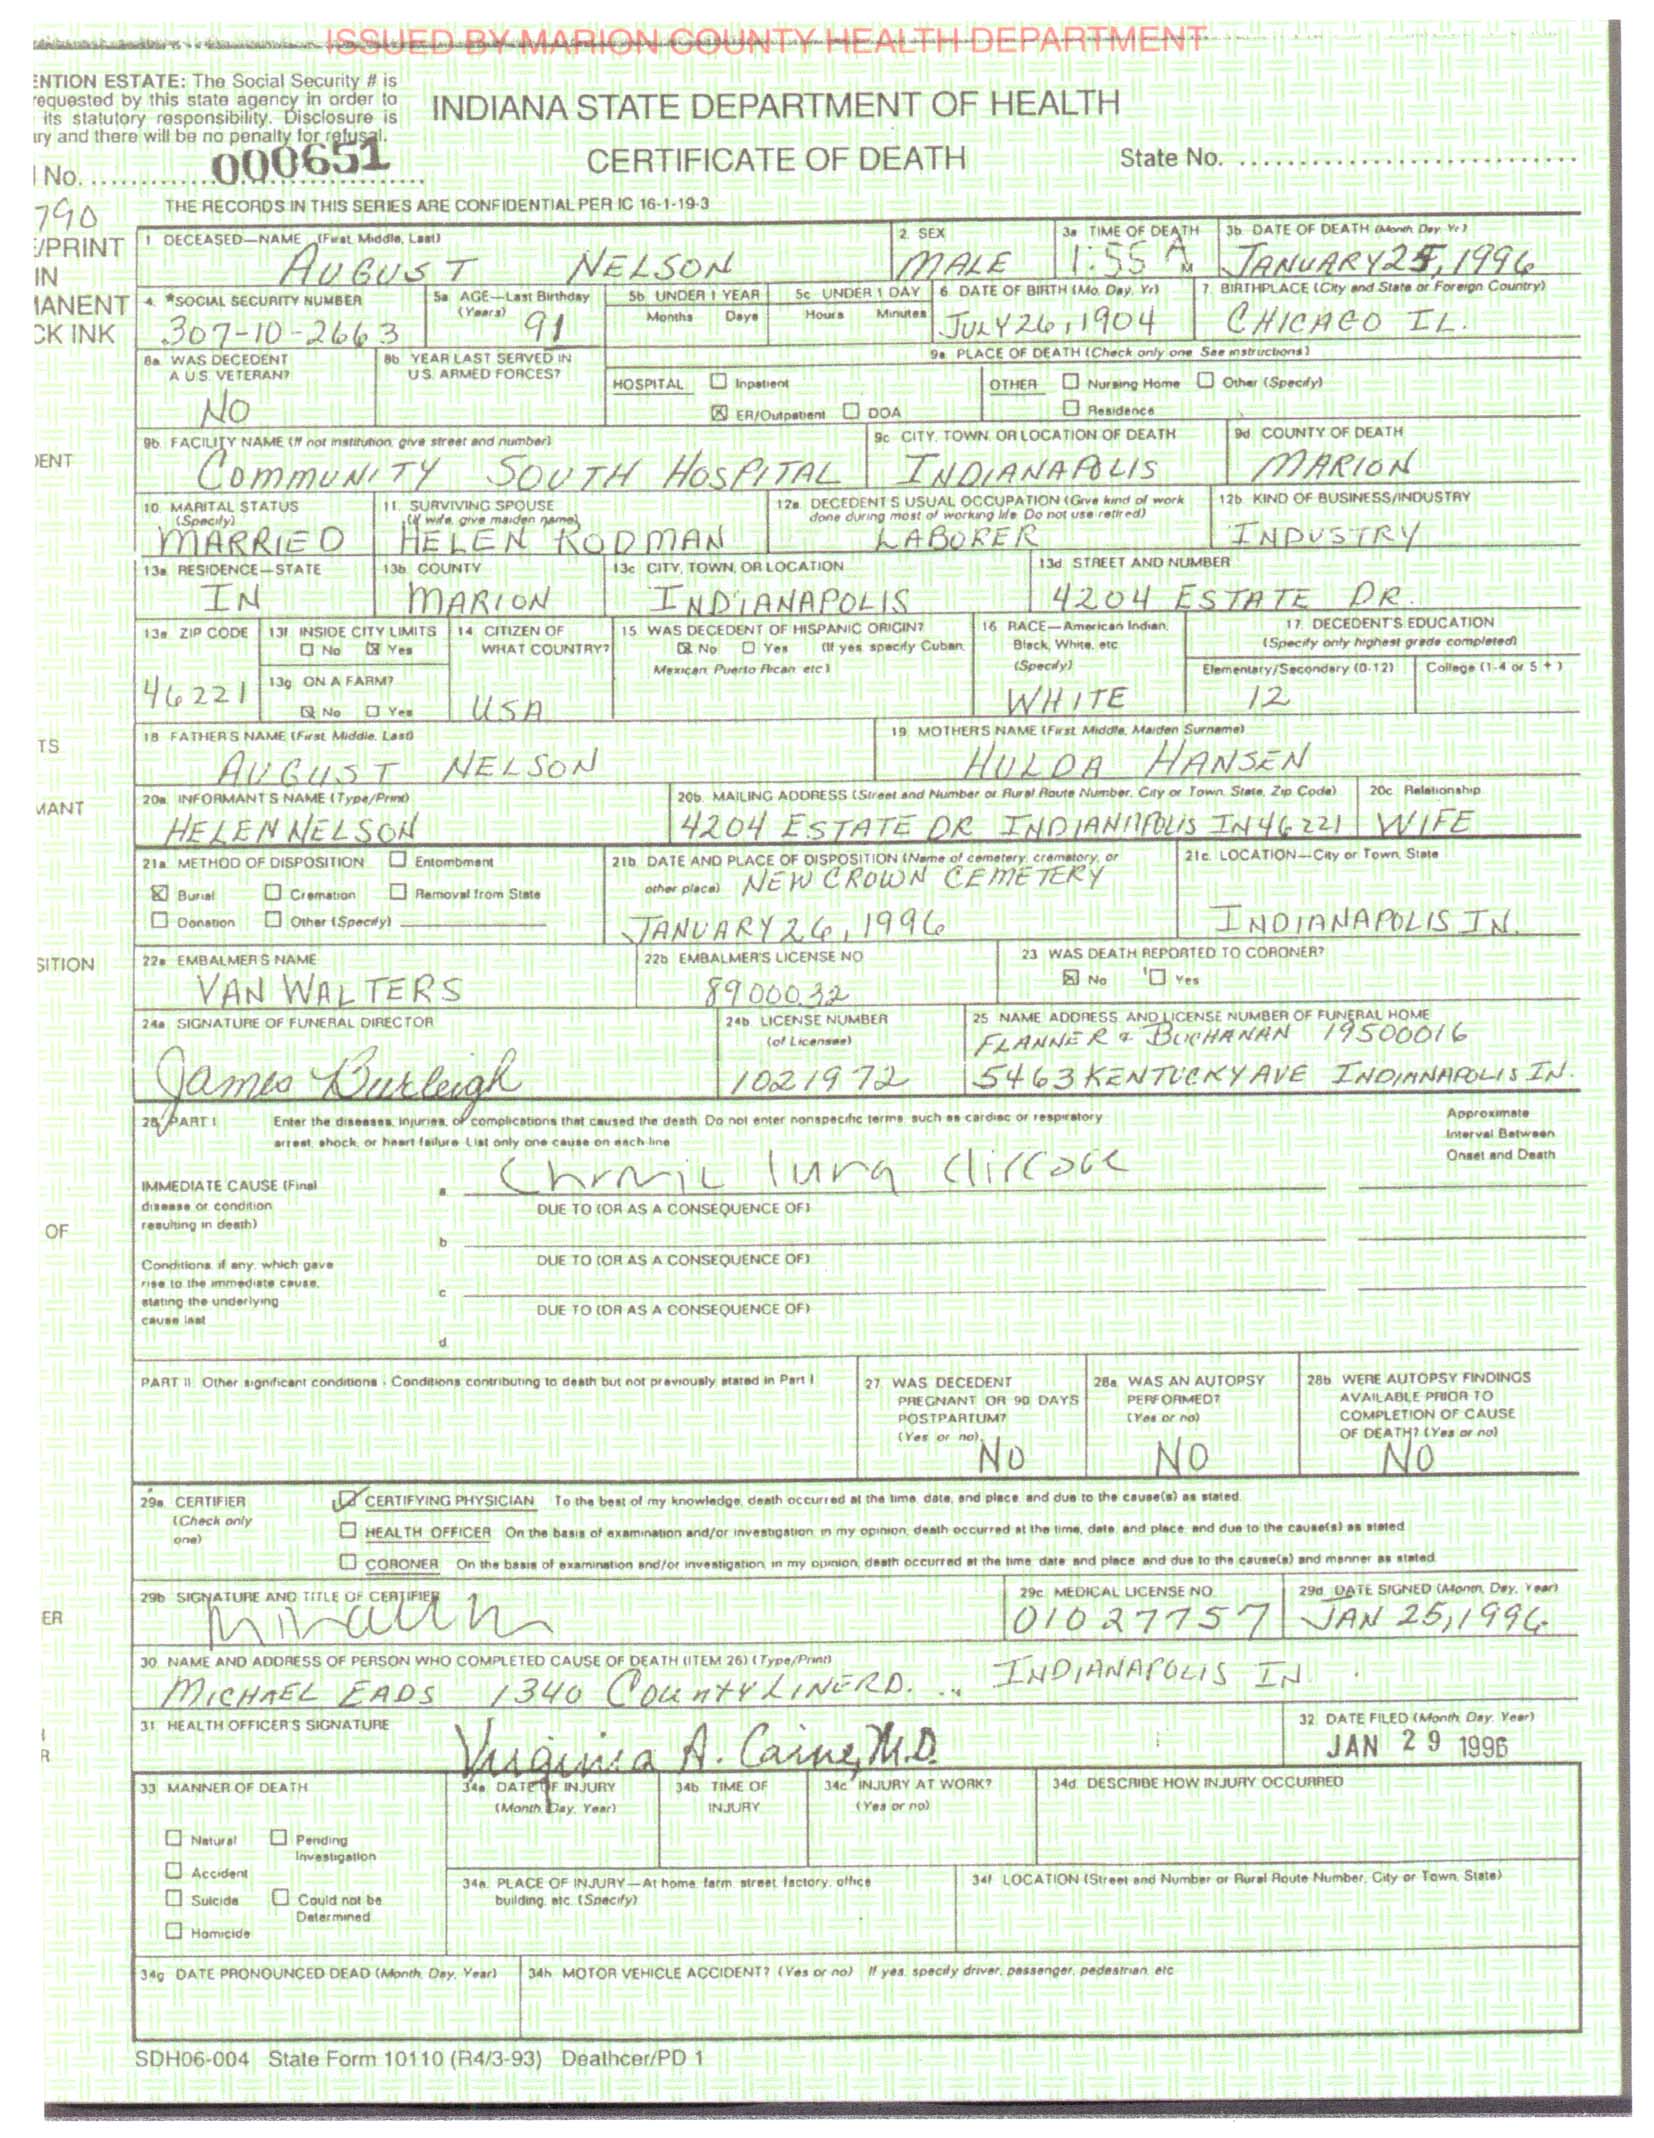 ISSUED BY MARION COUNTY HEALTH DEPARTMENT
ENTION ESTATE: The Social Security # is
requested by this state agency in order to
its statutory responsibility. Disclosure is
ry and there will be no penalty for refusal.
INDIANA STATE DEPARTMENT OF HEALTH
No. 000651
CERTIFICATE OF DEATH
State No.
THE RECORDS IN THIS SERIES ARE CONFIDENTIAL PER IC 16-1-19-3
790
/PRINT
IN
MANENT
CK INK
1 DECEASED—NAME (First, Middle, Last) 2 SEX 3a TIME OF DEATH 3b DATE OF DEATH (Month Day Yr)
AUGUST NELSON MALE 1:55 A M JANUARY 25, 1996
4 *SOCIAL SECURITY NUMBER 5a AGE—Last Birthday (Years) 5b UNDER 1 YEAR Months Days 5c UNDER 1 DAY Hours Minutes 6 DATE OF BIRTH (Mo. Day, Yr) 7. BIRTHPLACE (City and State or Foreign Country)
307-10-2663 91 JULY 26, 1904 CHICAGO IL.
8a WAS DECEDENT A U.S. VETERAN? 8b YEAR LAST SERVED IN U.S. ARMED FORCES? 9a PLACE OF DEATH (Check only one See instructions)
HOSPITAL Inpatient OTHER Nursing Home Other (Specify)
NO ER/Outpatient DOA Residence
9b. FACILITY NAME (If not institution, give street and number) 9c CITY, TOWN, OR LOCATION OF DEATH 9d COUNTY OF DEATH
DENT
COMMUNITY SOUTH HOSPITAL INDIANAPOLIS MARION
10 MARITAL STATUS (Specify) 11. SURVIVING SPOUSE (If wife, give maiden name) 12a DECEDENT'S USUAL OCCUPATION (Give kind of work done during most of working life Do not use retired) 12b KIND OF BUSINESS/INDUSTRY
MARRIED HELEN RODMAN LABORER INDUSTRY
13a RESIDENCE—STATE 13b COUNTY 13c CITY, TOWN, OR LOCATION 13d STREET AND NUMBER
IN MARION INDIANAPOLIS 4204 ESTATE DR.
13e ZIP CODE 13f INSIDE CITY LIMITS No Yes 14 CITIZEN OF WHAT COUNTRY? 15 WAS DECEDENT OF HISPANIC ORIGIN? No Yes (If yes, specify Cuban, Mexican Puerto Rican etc) 16 RACE—American Indian, Black, White, etc (Specify) 17. DECEDENT'S EDUCATION (Specify only highest grade completed)
13g ON A FARM? No Yes Elementary/Secondary (0-12) College (1-4 or 5 +)
46221 USA WHITE 12
TS
18 FATHER'S NAME (First, Middle, Last) 19 MOTHER'S NAME (First, Middle, Maiden Surname)
AUGUST NELSON HULDA HANSEN
MANT
20a. INFORMANT'S NAME (Type/Print) 20b MAILING ADDRESS (Street and Number or Rural Route Number, City or Town, State, Zip Code) 20c Relationship
HELEN NELSON 4204 ESTATE DR INDIANAPOLIS IN 46221 WIFE
21a METHOD OF DISPOSITION Entombment 21b DATE AND PLACE OF DISPOSITION (Name of cemetery, crematory, or other place) 21c. LOCATION—City or Town, State
Burial Cremation Removal from State NEW CROWN CEMETERY
Donation Other (Specify) JANUARY 26, 1996 INDIANAPOLIS IN.
SITION
22a EMBALMER'S NAME 22b EMBALMER'S LICENSE NO 23 WAS DEATH REPORTED TO CORONER?
VAN WALTERS 8900032 No Yes
24a SIGNATURE OF FUNERAL DIRECTOR 24b LICENSE NUMBER (of Licensee) 25 NAME ADDRESS AND LICENSE NUMBER OF FUNERAL HOME
FLANNER & BUCHANAN 19500016
James Burleigh 1021972 5463 KENTUCKY AVE INDIANAPOLIS IN.
26 PART I Enter the diseases, injuries, or complications that caused the death Do not enter nonspecific terms such as cardiac or respiratory
arrest, shock, or heart failure List only one cause on each line
Approximate Interval Between Onset and Death
IMMEDIATE CAUSE (Final disease or condition resulting in death) a Chronic lung disease
DUE TO (OR AS A CONSEQUENCE OF)
OF
b
DUE TO (OR AS A CONSEQUENCE OF)
Conditions, if any, which gave rise to the immediate cause, stating the underlying cause last
c
DUE TO (OR AS A CONSEQUENCE OF)
d
PART II Other significant conditions - Conditions contributing to death but not previously stated in Part I
27 WAS DECEDENT PREGNANT OR 90 DAYS POSTPARTUM? (Yes or no) NO
28a WAS AN AUTOPSY PERFORMED? (Yes or no) NO
28b WERE AUTOPSY FINDINGS AVAILABLE PRIOR TO COMPLETION OF CAUSE OF DEATH? (Yes or no) NO
29a CERTIFIER (Check only one)
CERTIFYING PHYSICIAN To the best of my knowledge, death occurred at the time, date, and place, and due to the cause(s) as stated.
HEALTH OFFICER On the basis of examination and/or investigation, in my opinion, death occurred at the time, date, and place, and due to the cause(s) as stated
CORONER On the basis of examination and/or investigation, in my opinion, death occurred at the time date and place and due to the cause(s) and manner as stated
29b SIGNATURE AND TITLE OF CERTIFIER 29c MEDICAL LICENSE NO 29d DATE SIGNED (Month, Day, Year)
ER
01027757 JAN 25, 1996
30 NAME AND ADDRESS OF PERSON WHO COMPLETED CAUSE OF DEATH (ITEM 26) (Type/Print)
MICHAEL EADS 1340 COUNTY LINE RD. INDIANAPOLIS IN
31 HEALTH OFFICER'S SIGNATURE 32 DATE FILED (Month, Day, Year)
R
Virginia A. Caine, M.D. JAN 29 1996
33 MANNER OF DEATH 34a DATE OF INJURY (Month, Day, Year) 34b TIME OF INJURY 34c INJURY AT WORK? (Yes or no) 34d DESCRIBE HOW INJURY OCCURRED
Natural Pending Investigation
Accident
Suicide Could not be Determined
Homicide
34e. PLACE OF INJURY—At home, farm, street, factory, office building, etc. (Specify) 34f LOCATION (Street and Number or Rural Route Number, City or Town, State)
34g DATE PRONOUNCED DEAD (Month, Day, Year) 34h MOTOR VEHICLE ACCIDENT? (Yes or no) If yes, specify driver, passenger, pedestrian, etc
SDH06-004 State Form 10110 (R4/3-93) Deathcer/PD 1